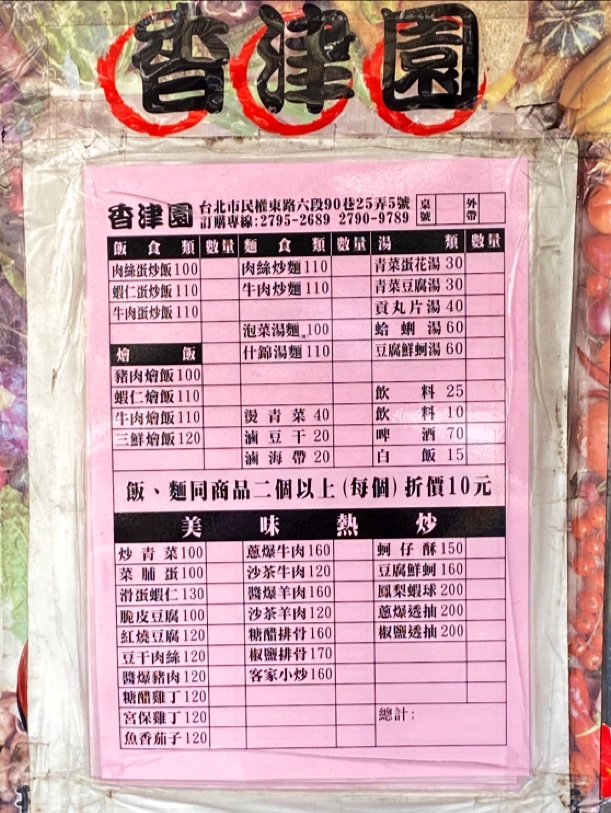 香津園
香津園 台北市民權東路六段90巷25弄5號 桌號 外帶
訂購專線:2795-2689 2790-9789
飯食類 數量 麵食類 數量 湯類 數量
肉絲蛋炒飯100 肉絲炒麵110 青菜蛋花湯30
蝦仁蛋炒飯110 牛肉炒麵110 青菜豆腐湯30
牛肉蛋炒飯110 貢丸片湯40
泡菜湯麵100 蛤蜊湯60
燴飯 什錦湯麵110 豆腐鮮蚵湯60
豬肉燴飯100
蝦仁燴飯110 飲料25
牛肉燴飯110 燙青菜40 飲料10
三鮮燴飯120 滷豆干20 啤酒70
滷海帶20 白飯15
飯、麵同商品二個以上(每個)折價10元
美味熱炒
炒青菜100 蔥爆牛肉160 蚵仔酥150
菜脯蛋100 沙茶牛肉120 豆腐鮮蚵160
滑蛋蝦仁130 醬爆羊肉160 鳳梨蝦球200
脆皮豆腐100 沙茶羊肉120 蔥爆透抽200
紅燒豆腐120 糖醋排骨160 椒鹽透抽200
豆干肉絲120 椒鹽排骨170
醬爆豬肉120 客家小炒160
糖醋雞丁120
宮保雞丁120 總計:
魚香茄子120